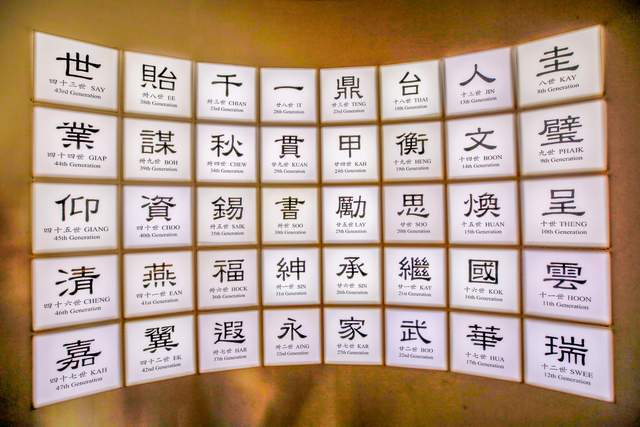 圭
八世 KAY
8th Generation
璧
九世 PHAIK
9th Generation
呈
十世 THENG
10th Generation
雲
十一世 HOON
11th Generation
瑞
十二世 SWEE
12th Generation
人
十三世 JIN
13th Generation
文
十四世 BOON
14th Generation
煥
十五世 HUAN
15th Generation
國
十六世 KOK
16th Generation
華
十七世 HUA
17th Generation
台
十八世 THAI
18th Generation
衡
十九世 HENG
19th Generation
思
世 SOO
20th Generation
繼
廿一世 KAY
21st Generation
武
廿二世 BOO
22nd Generation
鼎
廿三世 TENG
23rd Generation
甲
廿四世 KAH
24th Generation
勵
廿五世 LAY
25th Generation
承
廿六世 SIN
26th Generation
家
廿七世 KAR
27th Generation
一
廿八世 IT
28th Generation
貫
廿九世 KUAN
29th Generation
書
卅世 SOO
30th Generation
紳
卅一世 SIN
31st Generation
永
卅二世 AING
32nd Generation
千
卅三世 CHIAN
33rd Generation
秋
卅四世 CHEW
34th Generation
錫
卅五世 SAIK
35th Generation
福
卅六世 HOCK
36th Generation
遐
卅七世 HAR
37th Generation
貽
卅八世 EE
38th Generation
謀
卅九世 BOH
39th Generation
資
四十世 CHOO
40th Generation
燕
四十一世 EAN
41st Generation
翼
四十二世 EK
42nd Generation
世
四十三世 SAY
43rd Generation
業
四十四世 GIAP
44th Generation
仰
四十五世 GIANG
45th Generation
清
四十六世 CHENG
46th Generation
嘉
四十七世 KAH
47th Generation